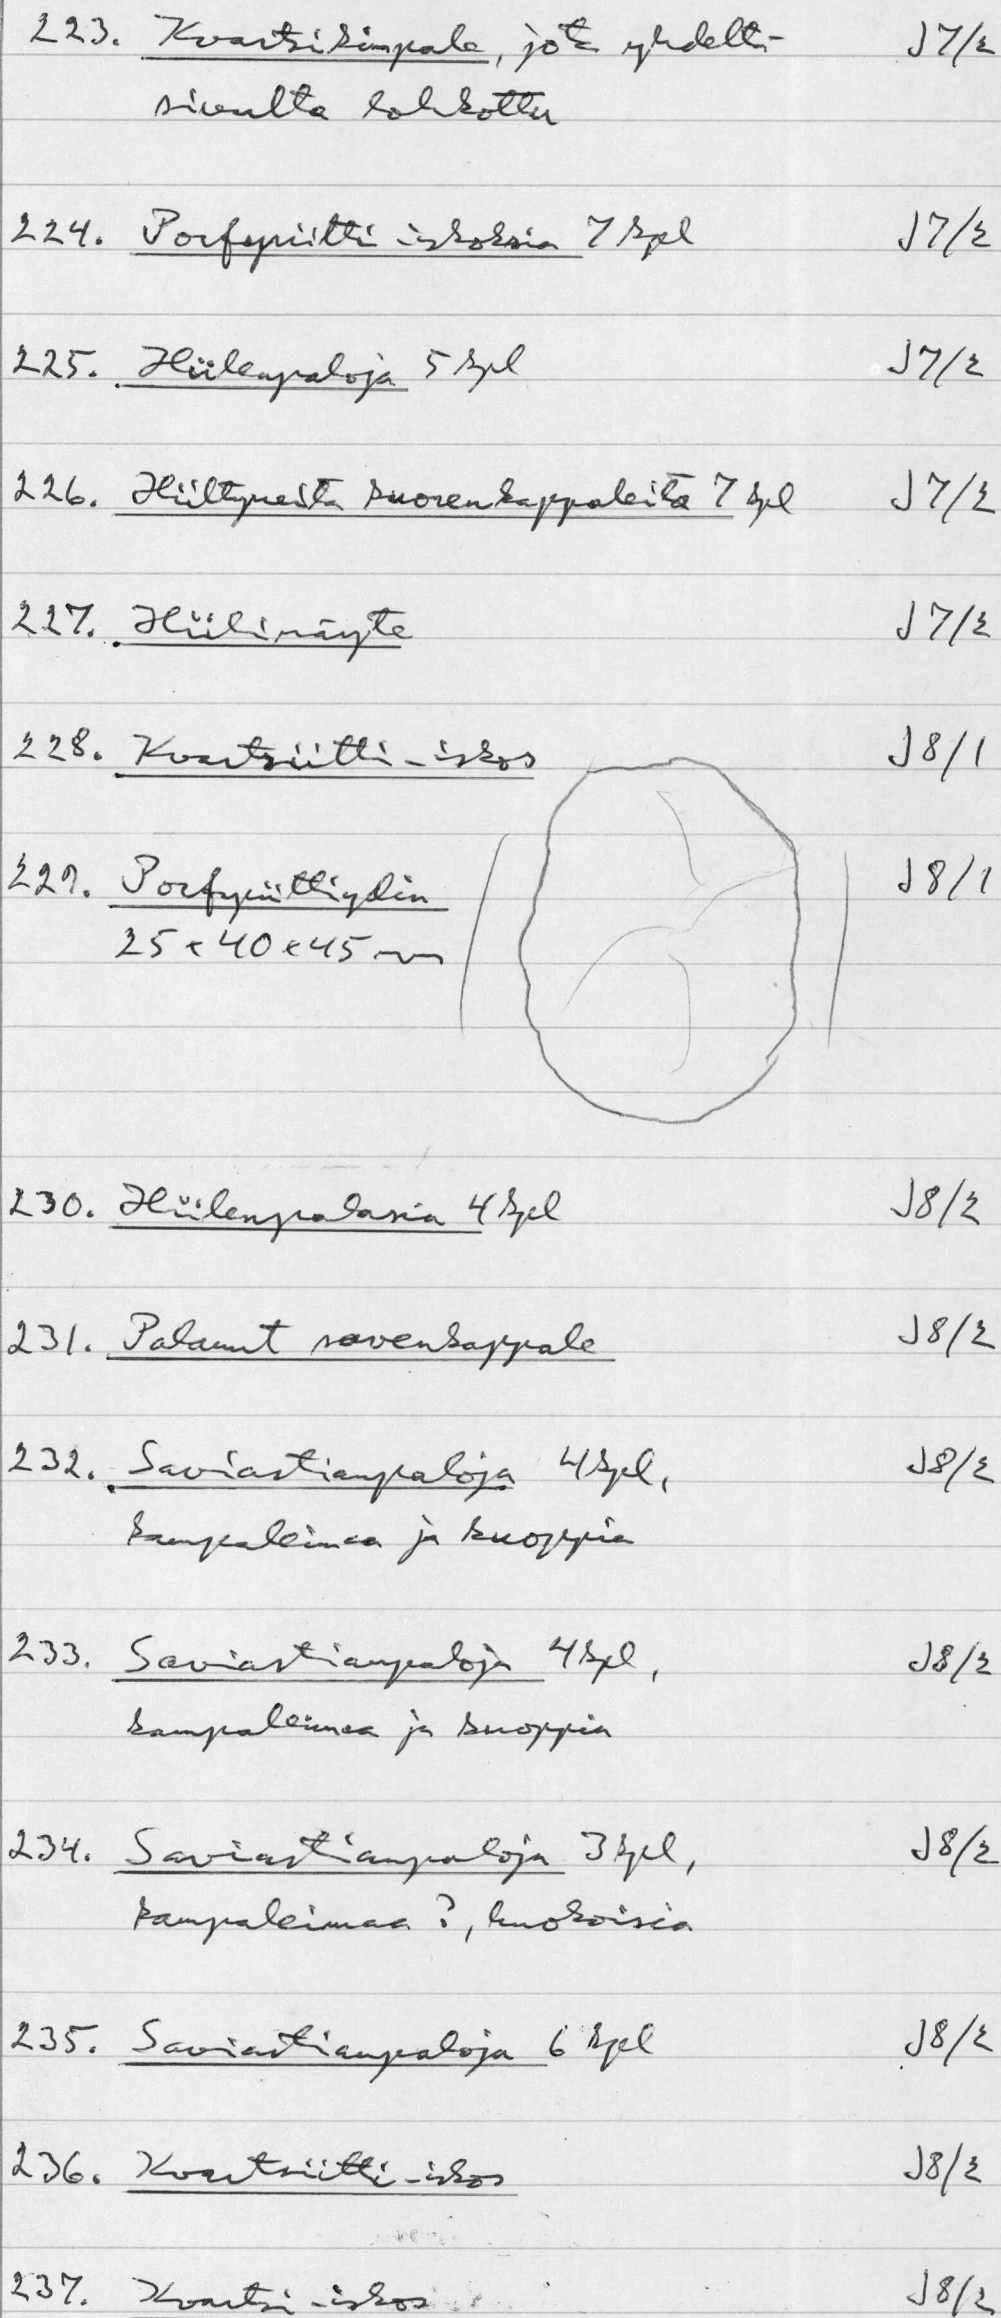 223. Kvartsikimpale, jota yhdeltä J7/2
sivulta lohkottu
224. Porfyriitti-iskoksia 7 kpl J7/2
225. Hiilenpaloja 5 kpl J7/2
226. Hiiltyneitä kuorenkappaleita 7 kpl J7/2
227. Hiilinäyte J7/2
228. Kvartsiitti-iskos J8/1
229. Porfyriittiydin J8/1
25 x 40 x 45 mm
230. Hiilenpalasia 4 kpl J8/2
231. Palanut savenkappale J8/2
232. Saviastianpaloja 4 kpl, J8/2
kampaleimaa ja kuoppia
233. Saviastianpaloja 4 kpl, J8/2
kampaleimaa ja kuoppia
234. Saviastianpaloja 3 kpl, J8/2
kampaleimaa ?, huokoisia
235. Saviastianpaloja 6 kpl J8/2
236. Kvartsiitti-iskos J8/2
237. Kvartsi-iskos J8/2